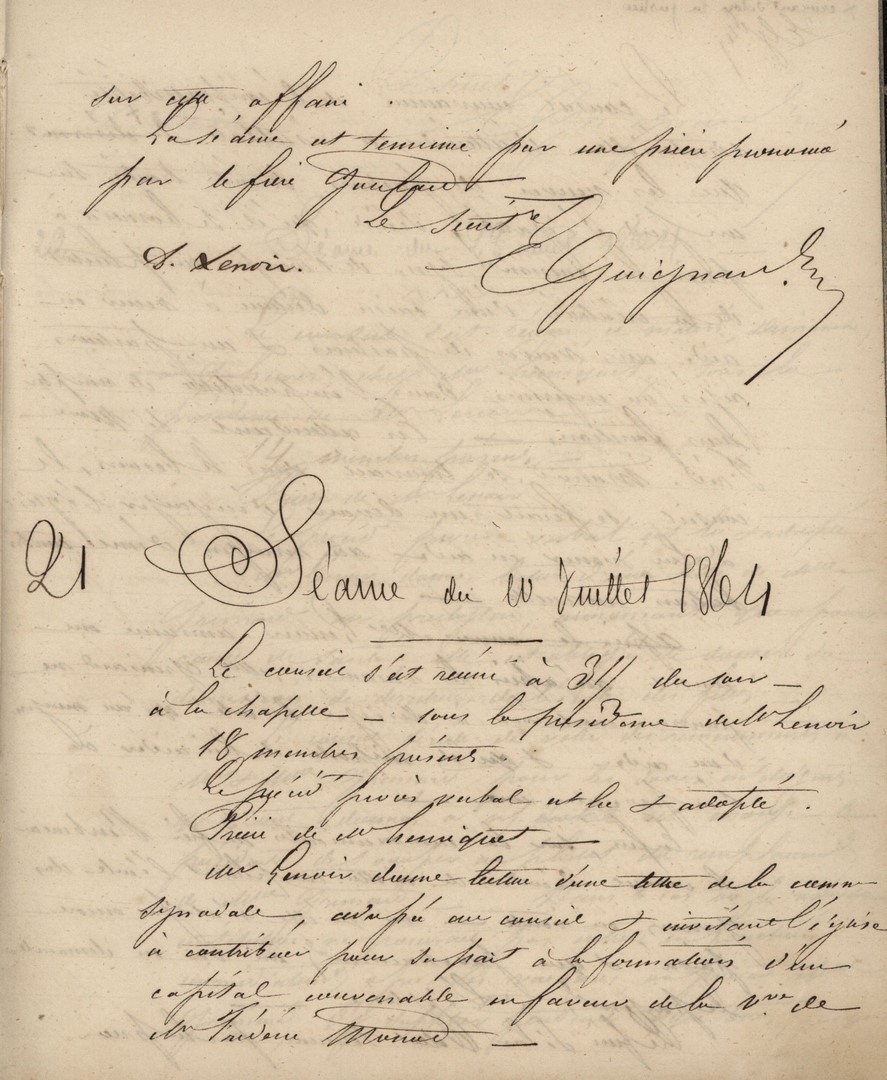 sur cette affaire.
La séance est terminée par une prière prononcé
par le frère
Le Secrét.re
S. Lenoir. Guignard
21 Séance du 10 Juillet 1864
Le conseil s'est réuni à 3 h du soir —
à la chapelle — sous la présidence de Mr Lenoir
18 membres présents.
Le précédt procès verbal est lu & adopté.
Prière de Mr henriquet —
Mr Lenoir donne lecture d'une lettre de la comm
synodale, adressée au conseil & invitant l'église
à contribuer pour sa part à la formation d'un
capital convenable en faveur de la vve de
Mr Frédéric Monod —